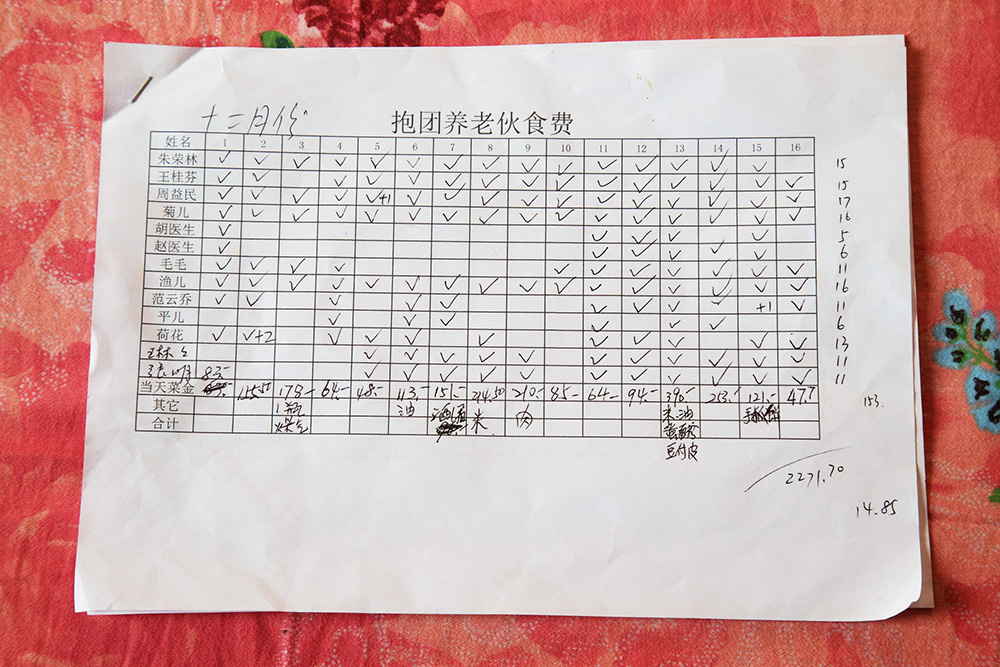 十二月份
抱团养老伙食费
姓名 1 2 3 4 5 6 7 8 9 10 11 12 13 14 15 16
朱荣林 ✓ ✓ ✓ ✓ ✓ ✓ ✓ ✓ ✓ ✓ ✓ ✓ ✓ ✓ ✓ 15
王桂芬 ✓ ✓ ✓ ✓ ✓ ✓ ✓ ✓ ✓ ✓ ✓ ✓ ✓ ✓ ✓ 15
周益民 ✓ ✓ ✓ ✓ ✓+1 ✓ ✓ ✓ ✓ ✓ ✓ ✓ ✓ ✓ ✓ ✓ 17
菊儿 ✓ ✓ ✓ ✓ ✓ ✓ ✓ ✓ ✓ ✓ ✓ ✓ ✓ ✓ ✓ ✓ 16
胡医生 ✓ ✓ ✓ ✓ ✓ 5
赵医生 ✓ ✓ ✓ ✓ ✓ ✓ 6
毛毛 ✓ ✓ ✓ ✓ ✓ ✓ ✓ ✓ ✓ ✓ ✓ 11
渔儿 ✓ ✓ ✓ ✓ ✓ ✓ ✓ ✓ ✓ ✓ ✓ ✓ ✓ ✓ ✓ ✓ 16
范云乔 ✓ ✓ ✓ ✓ ✓ ✓ ✓ ✓ ✓ +1 ✓ 11
平儿 ✓ ✓ ✓ ✓ ✓ ✓ 6
荷花 ✓ ✓+2 ✓ ✓ ✓ ✓ ✓ ✓ ✓ ✓ ✓ 13
✓ ✓ ✓ ✓ ✓ ✓ ✓ ✓ ✓ ✓ ✓ 11
✓ ✓ ✓ ✓ ✓ ✓ ✓ ✓ ✓ ✓ ✓ 11
当天菜金 83.- 125.50 178.- 64.- 48.- 113.- 151.- 214.50 210.- 85.- 64.- 94.- 390.- 213.- 121.- 47.7 153.
其它 1瓶 煤气 油 酒 米 肉 米.油 豆付皮
合计
2271.70
14.85